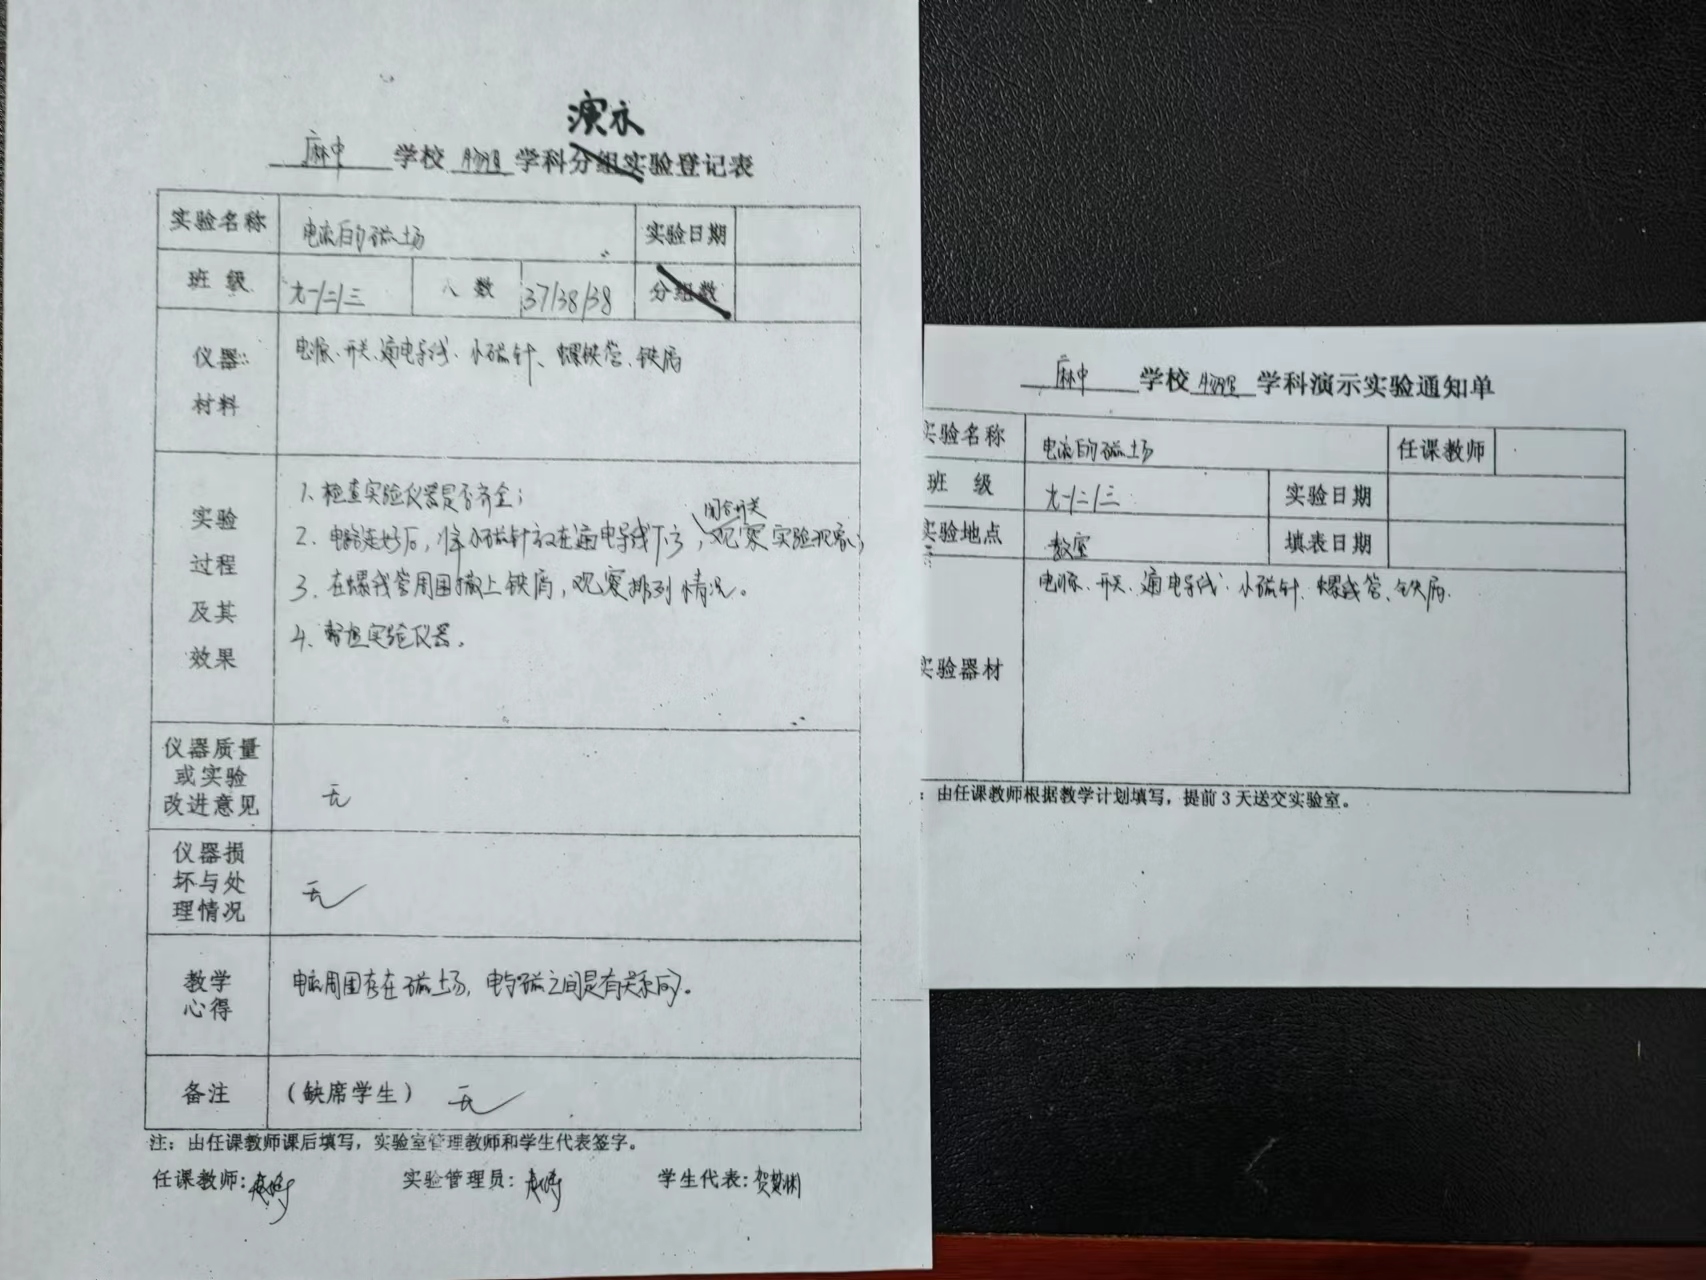 演示
麻中 学校 物理 学科分组实验登记表
实验名称 电流的磁场 实验日期
班 级 九一/二/三 人 数 37/38/38 分组数
仪器 材料 电源、开关、通电导线、小磁针、螺线管、铁屑
实验 过程 及其 效果
1、检查实验仪器是否齐全;
闭合开关
2、电路连好后,将小磁针放在通电导线下方,观察实验现象;
3、在螺线管周围撒上铁屑,观察排列情况。
4、整理实验仪器。
仪器质量 或实验 改进意见 无
仪器损 坏与处 理情况 无
教学 心得 电流周围存在磁场,电与磁之间是有关系的。
备注 (缺席学生) 无
注:由任课教师课后填写,实验室管理教师和学生代表签字。
任课教师: 实验管理员: 学生代表:贺梦渊
麻中 学校 物理 学科演示实验通知单
实验名称 电流的磁场 任课教师
班 级 九一/二/三 实验日期
实验地点 教室 填表日期
实验器材 电源、开关、通电导线、小磁针、螺线管、铁屑.
:由任课教师根据教学计划填写,提前3天送交实验室。